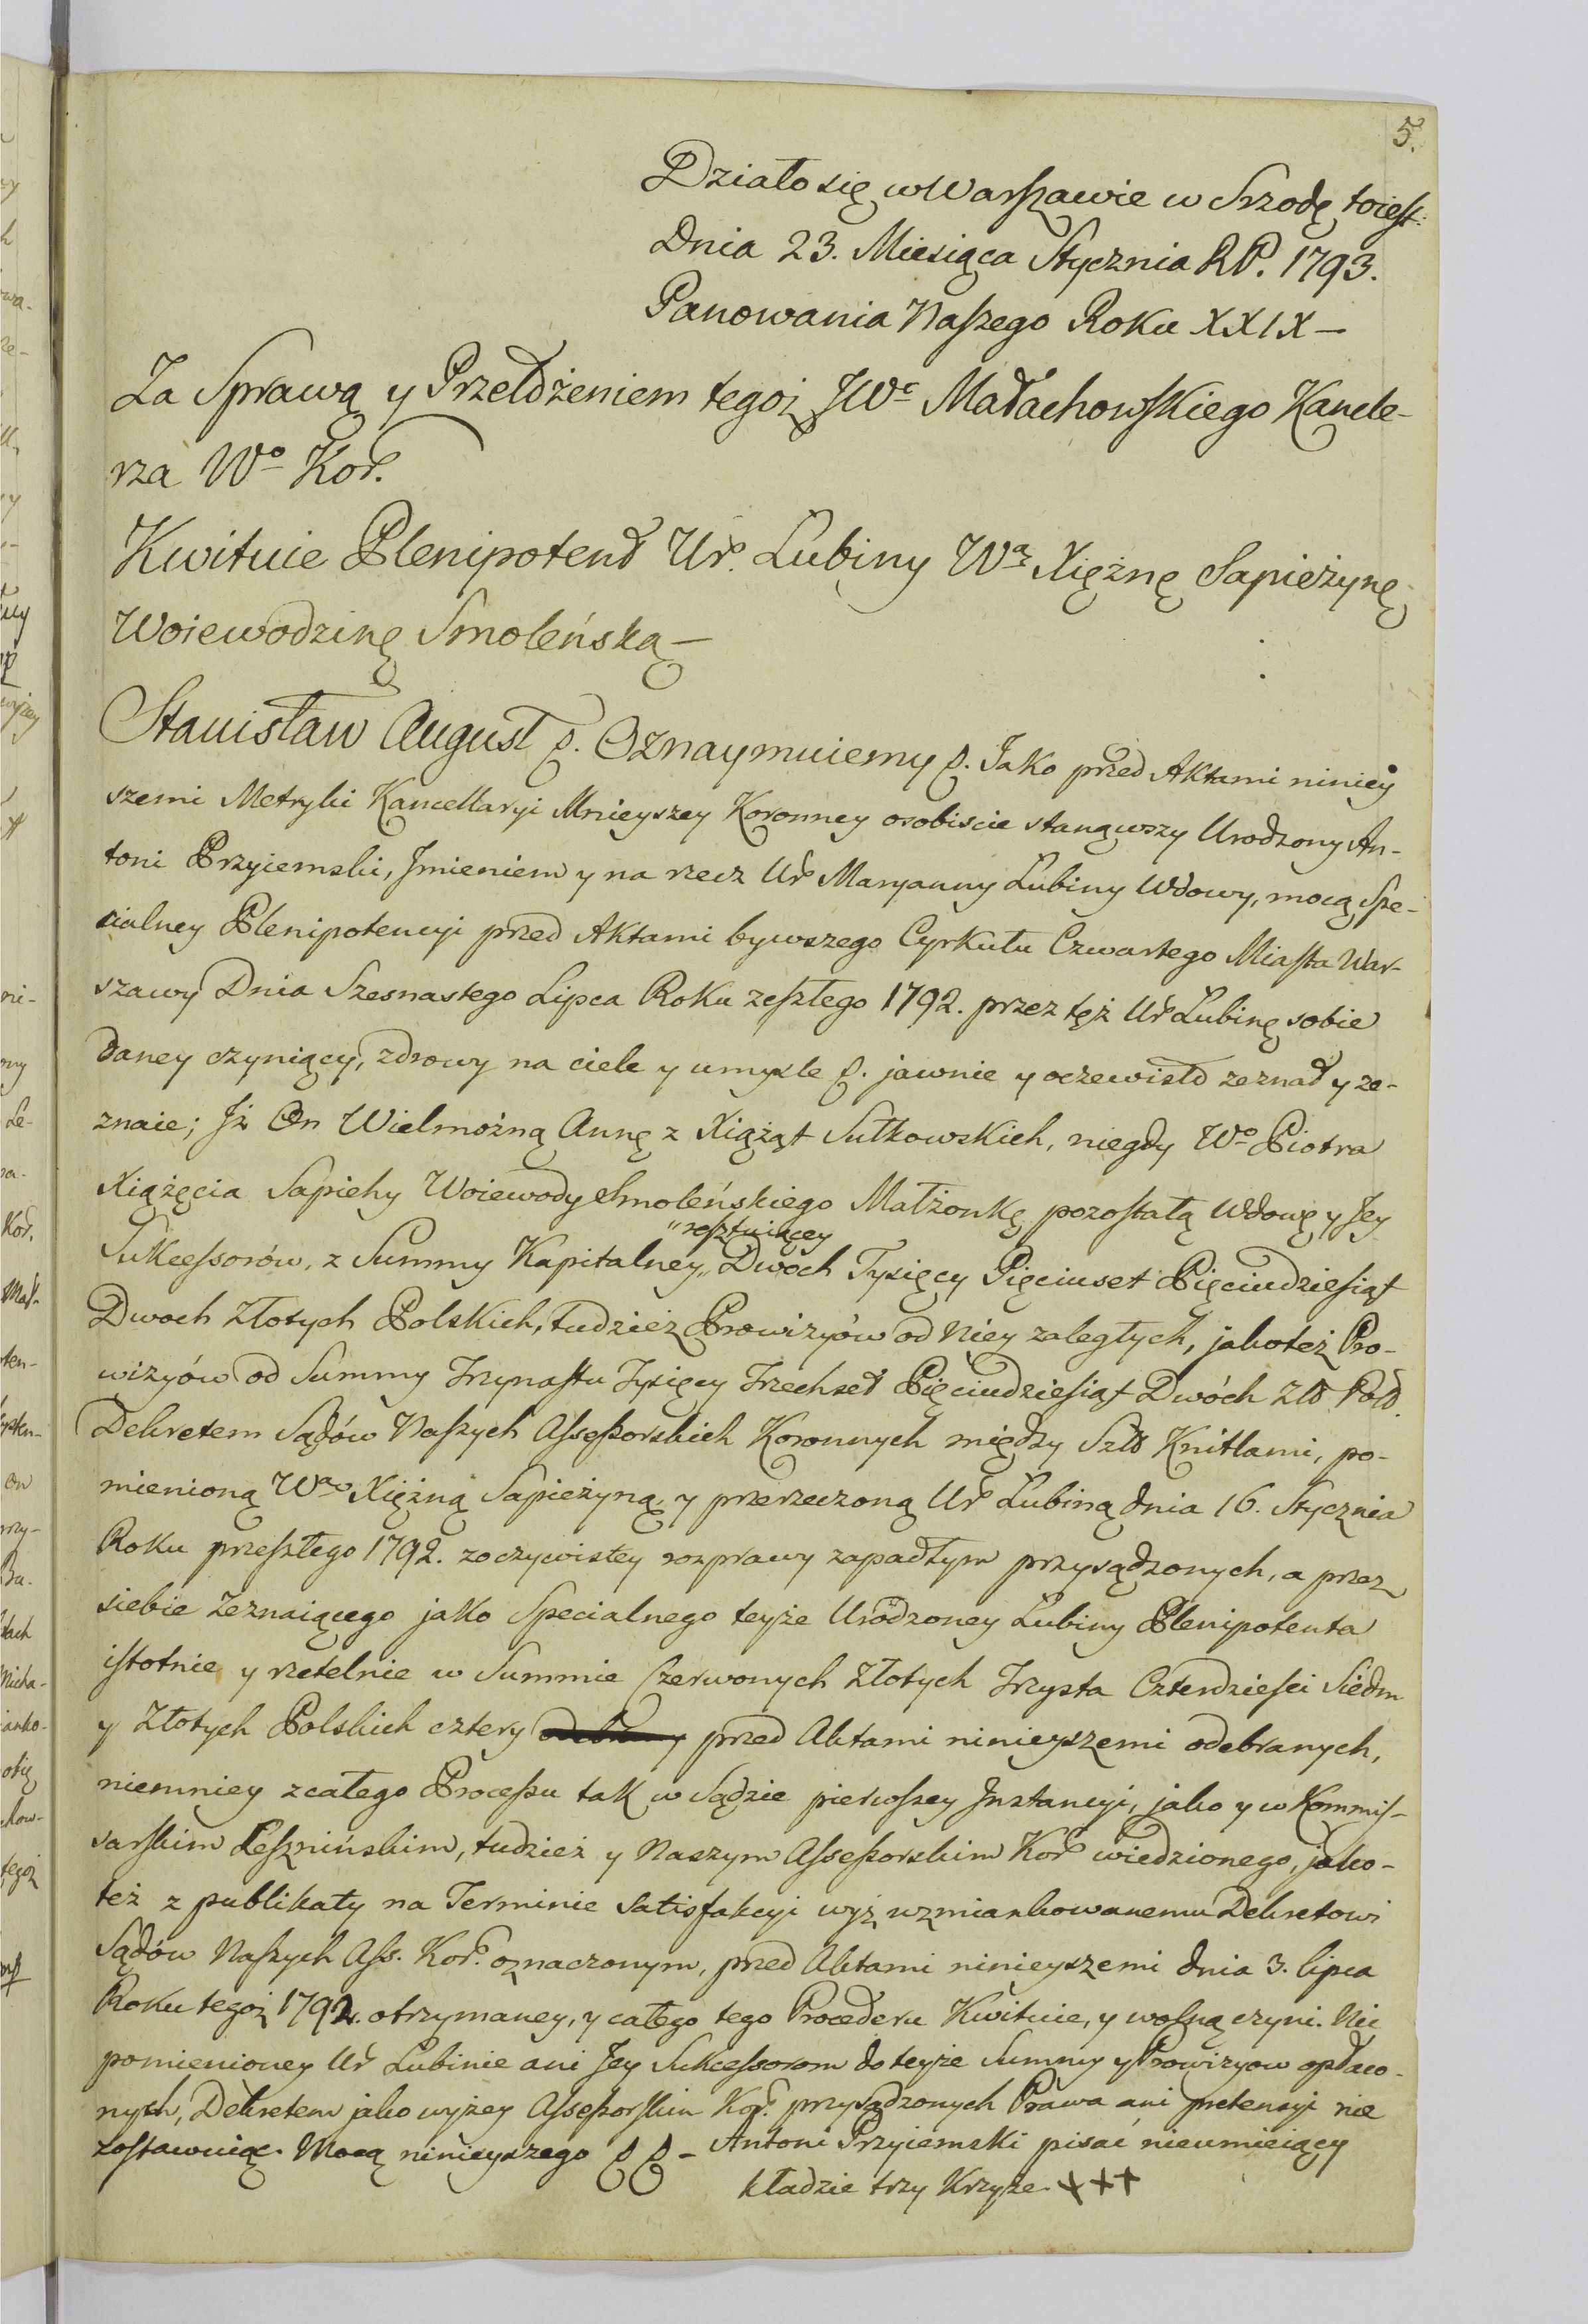 5.
Działo się w Warszawie w Srzodę toiest:
Dnia 23. Miesiąca Stycznia RP. 1793.
Panowania Naszego Roku XXIX—
Za Sprawą y Przełożeniem tegoż JWo Małachowskiego Kancle-
rza Wo Kor.
Kwituie Plenipotent Ur. Lubiny Wą Xiężnę Sapieżynę
Woiewodzinę Smoleńską—
Stanisław August &. Oznaymuiemy &. Jako przed Aktami niniey
szemi Metryki Kancellaryi Mnieyszey Koronney osobiscie stanąwszy Urodzony An-
toni Przyiemski, Jmieniem y na rzecz Ur Maryanny Lubiny Wdowy, mocą Spe-
cialney Plenipotencyi przed Aktami bywszego Cyrkułu Czwartego Miasta War-
szawy Dnia Szesnastego Lipca Roku zeszłego 1792. przez tęż Ur Lubinę sobie
daney czyniący, zdrowy na ciele y umysle &. jawnie y oczewisto zeznał y ze-
znaie; Jż On Wielmożną Annę z Xiążąt Sułkowskich, niegdy Wo Piotra
Xiążęcia Sapiehy Woiewody Smoleńskiego Małżonkę pozostałą Wdowę y Jey
Sukcessorów, z Summy Kapitalney "resztuiącey Dwoch Tysięcy Pięciuset Pięciudziesiąt
Dwoch Złotych Polskich, tudzież Prowizyów od Niey zaległych, jakoteż Pro-
wizyów od Summy Trzynastu Tysięcy Trzechset Pięciudziesiąt Dwóch Złt Pol.
Dekretem Sądów Naszych Assessorskich Koronnych między Szlt Knitlami, po-
mienioną Wą Xiężną Sapieżyną, y przerzeczoną Ur Lubiną dnia 16. Stycznia
Roku przeszłego 1792. z oczywistey rozprawy zapadłym przysądzonych, a przez
siebie Zeznaiącego jako Specialnego teyże Urodzoney Lubiny Plenipotenta
istotnie y rzetelnie w Summie Czerwonych Złotych Trzysta Czterdziesci Siedm
y Złotych Polskich cztery przed Aktami ninieyszemi odebranych,
niemniey z całego Processu tak w Sądzie pierwszey Jnstancyi, jako y w Kommis-
sarskim Leszninskim, tudzież y Naszym Assessorskim Kor wiedzionego, jako-
też z publikaty na Terminie Satisfakcyi wyż wzmiankowanemu Dekretowi
Sądów Naszych Ass. Kor. oznaczonym, przed Aktami ninieyszemi dnia 3. lipca
Roku tegoż 1792. otrzymaney, y całego tego Procederu Kwituie, y wolną czyni. Nic
pomienioney Ur Lubinie ani Jey Sukcessorom do teyże Summy y Prowizyow opłaco-
nych, Dekretem jako wyżey Assessorskim Kor. przysądzonych Prawa ani pretensyi nie
zostawuiąc. Mocą ninieyszego && - Antoni Przyiemski pisać nieumieiący
kładzie trzy Krzyże. +++